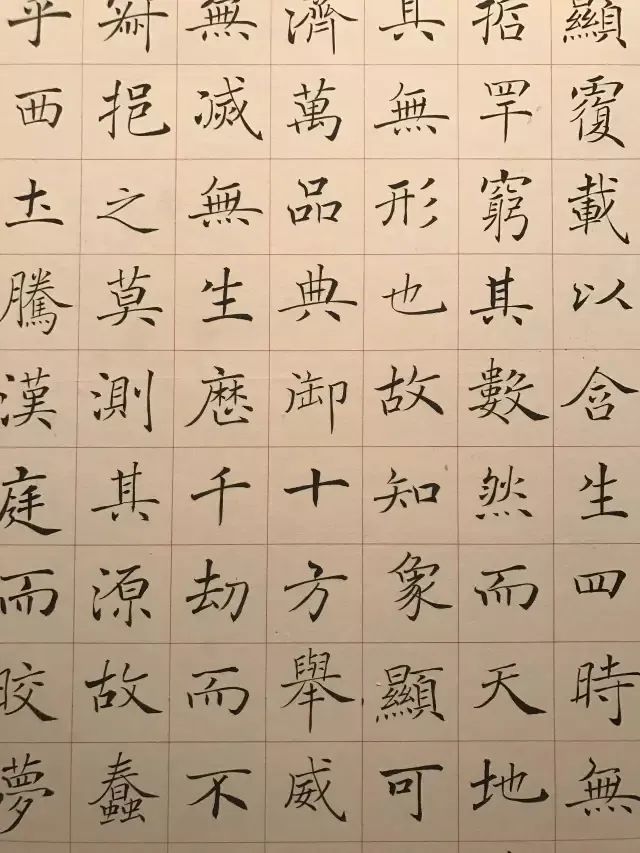 顯覆載以含生四時無
哲罕窮其數然而天地
其無形也故知象顯可
濟萬品典御十方舉威
無滅無生歷千劫而不
挹之莫測其源故蠢
乎西土騰漢庭而皎夢